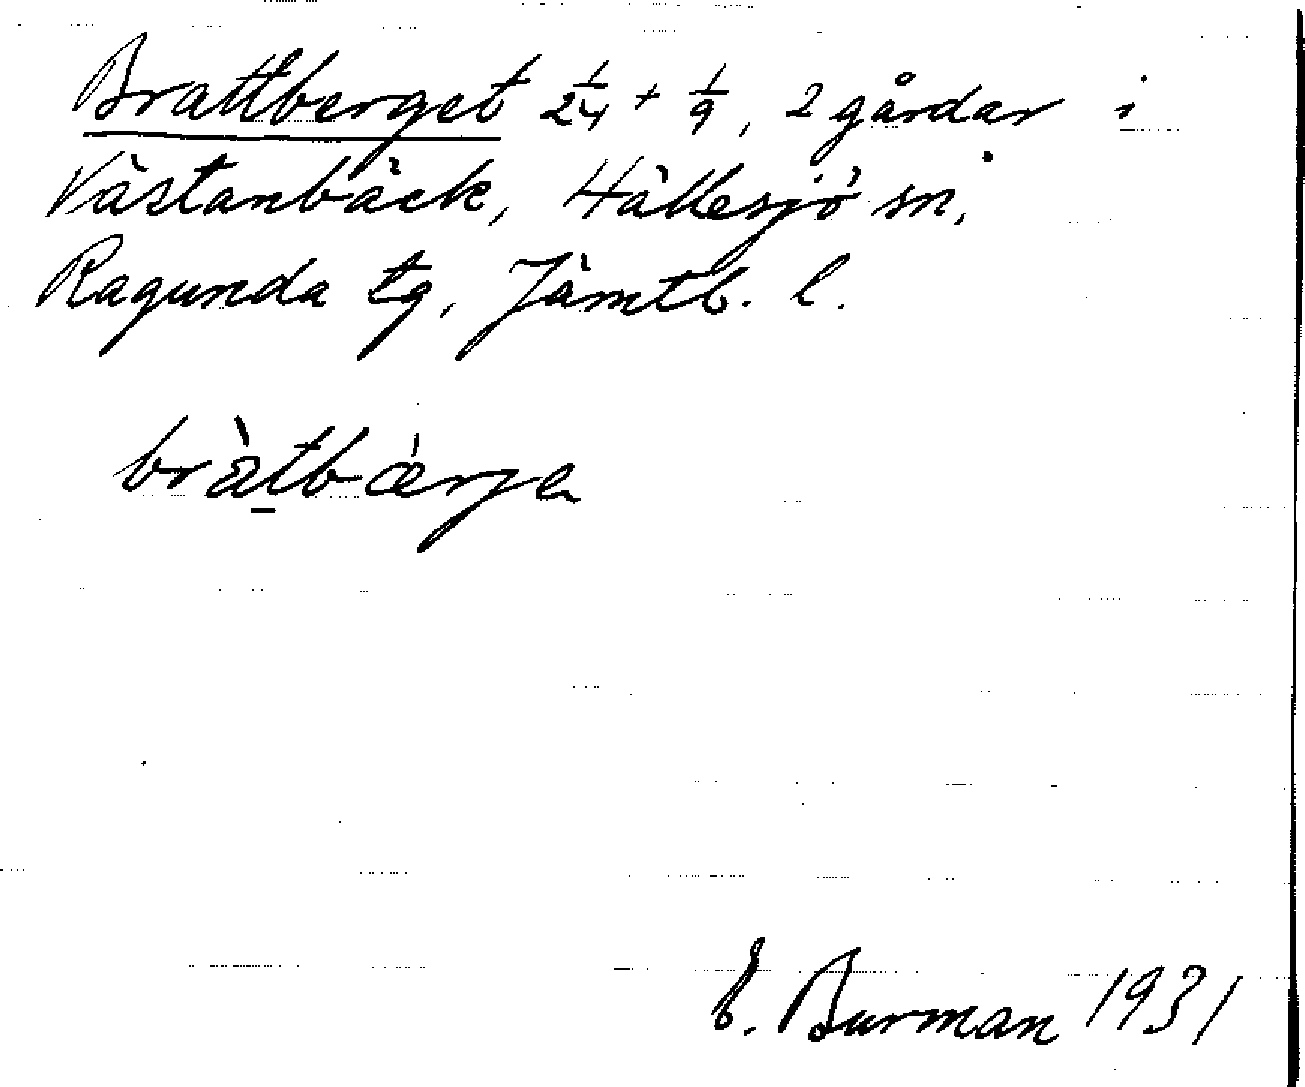 Brattberget 2¼ + ⅑, 2 gårdar i
Västanbäck, Hällesjö sn,
Ragunda tg, Jämtl. l.
bràtbærje
E. Burman 1931